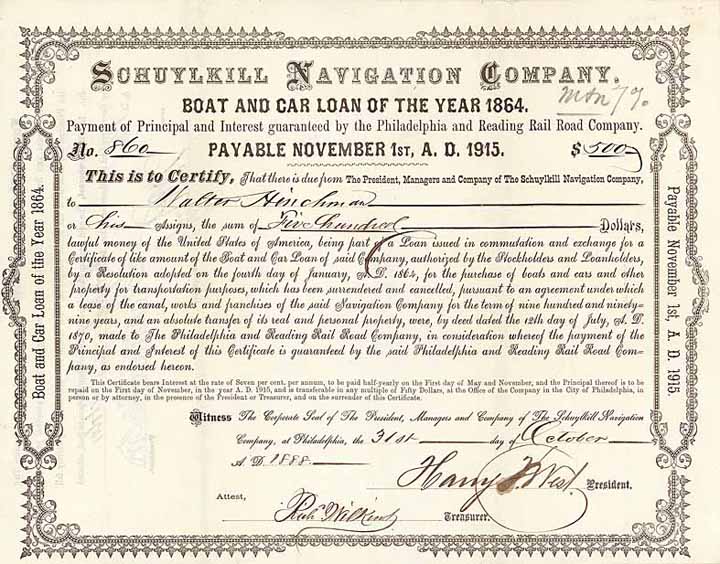 SCHUYLKILL NAVIGATION COMPANY.
BOAT AND CAR LOAN OF THE YEAR 1864.
Payment of Principal and Interest guaranteed by the Philadelphia and Reading Rail Road Company.
No. 860 PAYABLE NOVEMBER 1ST, A. D. 1915. $500
This is to Certify, That there is due from The President, Managers and Company of The Schuylkill Navigation Company,
to Walter Hinchman
or his Assigns, the sum of Five hundred Dollars,
lawful money of the United States of America, being part of a Loan issued in commutation and exchange for a
Certificate of like amount of the Boat and Car Loan of said Company, authorized by the Stockholders and Loanholders,
by a Resolution adopted on the fourth day of January, A. D. 1864, for the purchase of boats and cars and other
property for transportation purposes, which has been surrendered and cancelled, pursuant to an agreement under which
a lease of the canal, works and franchises of the said Navigation Company for the term of nine hundred and ninety-
nine years, and an absolute transfer of its real and personal property, were, by deed dated the 12th day of July, A. D.
1870, made to The Philadelphia and Reading Rail Road Company, in consideration whereof the payment of the
Principal and Interest of this Certificate is guaranteed by the said Philadelphia and Reading Rail Road Com-
pany, as endorsed hereon.
This Certificate bears Interest at the rate of Seven per cent. per annum, to be paid half-yearly on the First day of May and November, and the Principal thereof is to be
repaid on the First day of November, in the year A. D. 1915, and is transferable in any multiple of Fifty Dollars, at the Office of the Company in the City of Philadelphia, in
person or by attorney, in the presence of the President or Treasurer, and on the surrender of this Certificate.
Witness The Corporate Seal of The President, Managers and Company of The Schuylkill Navigation
Company, at Philadelphia, the 31st day of October
A D. 1888.
Harry F. West. President.
Attest,
Richd Wilkins Treasurer.
Boat and Car Loan of the Year 1864.
Payable November 1st, A. D. 1915.